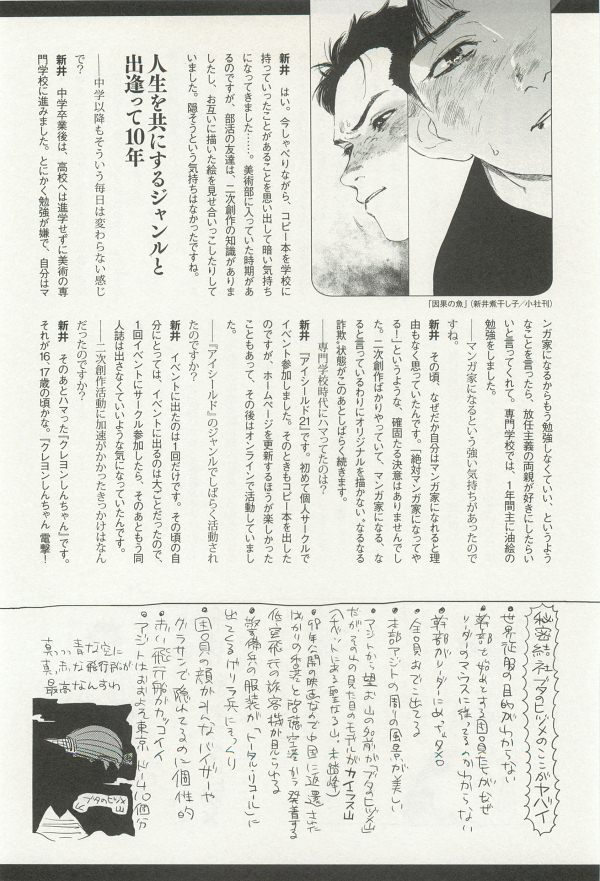 新井　はい。今しゃべりながら、コピー本を学校に
持っていったことがあることを思い出して暗い気持ち
になってきました……。美術部に入っていた時期があ
るのですが、部活の友達は、二次創作の知識がありま
したし、お互いに描いた絵を見せ合いっこしたりして
いました。隠そうという気持ちはなかったですね。
人生を共にするジャンルと
出逢って10年
――中学以降もそういう毎日は変わらない感じ
で？
新井　中学卒業後は、高校へは進学せずに美術の専
門学校に進みました。とにかく勉強が嫌で、自分はマ
「因果の魚」（新井煮干し子／小社刊）
ンガ家になるからもう勉強しなくていい、というよう
なことを言ったら、放任主義の両親が好きにしたらい
いと言ってくれて。専門学校では、1年間主に油絵の
勉強をしました。
――マンガ家になるという強い気持ちがあったので
すね。
新井　その頃、なぜだか自分はマンガ家になれると理
由もなく思っていたんです。「絶対マンガ家になってや
る！」というような、確固たる決意はありませんでし
た。二次創作ばかりやっていて、マンガ家になる、な
ると言っているわりにオリジナルを描かない、“なるなる
詐欺”状態がこのあとしばらく続きます。
――専門学校時代にハマってたのは？
新井　『アイシールド21』です。初めて個人サークルで
イベント参加しました。そのときもコピー本を出した
のですが、ホームページを更新するほうが楽しかった
こともあって、その後はオンラインで活動していまし
た。
――『アイシールド』のジャンルでしばらく活動され
たのですか？
新井　イベントに出たのは1回だけです。その頃の自
分にとっては、イベントに出るのは大ごとだったので、
1回イベントにサークル参加したら、そのあともう同
人誌は出さなくていいような気になっていたんです。
――二次創作活動に加速がかかったきっかけはなん
だったのですか？
新井　そのあとハマった『クレヨンしんちゃん』です。
それが16、17歳の頃かな。『クレヨンしんちゃん 電撃！
秘密結社ブタのヒヅメのここがヤバイ
・世界征服の目的がわからない
・幹部を始めとする団員たちがなぜ
リーダーのマウスに従ってるかわからない
・幹部がリーダーにめっちゃタメ口
・全員おでこ出てる
・本部アジトの周りの風景が美しい
・アジトから望む山の名前が「ブタのヒヅメ山」
だが、その山の見た目のモデルがカイラス山
（チベットにある聖なる山。未踏峰）
・98年公開の映画なので中国に返還された
ばかりの香港と啓徳空港から発着する
低空飛行の旅客機が見られる
・警備兵の服装が「トータル・リコール」に
出てくるゲリラ兵にそっくり
・団員の顔がみんなバイザーや
グラサンで隠れてるのに個性的
・赤い飛行船がカッコイイ
・アジトはおおよそ東京ドーム40個分
真っっっ青な空に
真っ赤な飛行船が
最高なんすわ
ブタのヒヅメ山